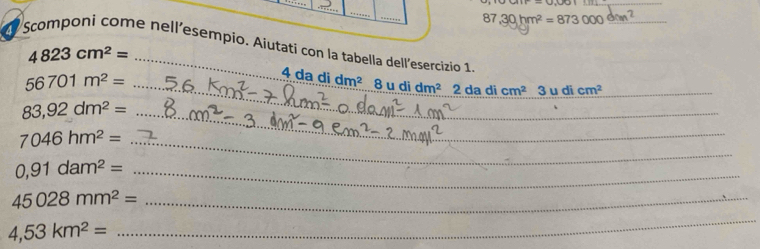 87,30 hm² = 873 000 dam²
4 Scomponi come nell'esempio. Aiutati con la tabella dell'esercizio 1.
4 823 cm² = 4 da di dm² 8 u di dm² 2 da di cm² 3 u di cm²
56 701 m² = 56 Km² - 7 hm² = 0 dam² 1 m²
83,92 dm² = 8 m² - 3 dm² - 9 cm² - 2 mm²
7 046 hm² = 7
0,91 dam² =
45 028 mm² =
4,53 km² =